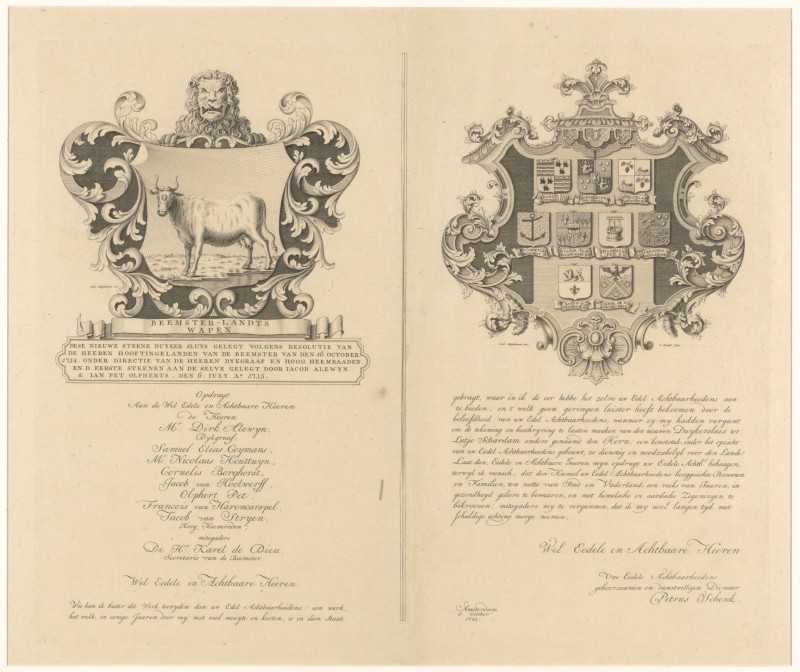 BEEMSTER-LANDTS
WAPEN.
DESE NIEUWE STEENE DUYKER SLUYS GELEGT VOLGENS RESOLUTIE VAN
DE HEEREN HOOFTINGELANDEN VAN DE BEEMSTER VAN DEN 16 OCTOBER
1714. ONDER DIRECTIE VAN DE HEEREN DYKGRAAF EN HOOG HEEMRAADEN
EN D. EERSTE STEENEN AAN DE SELVE GELEGT DOOR IACOB ALEWYN
& IAN PET OLPHERTS. DEN 6. IULY Aº 1715.
Opdragt
Aan de Wel Edele en Achtbaare Heeren
de Heeren
Mr. Dirk Alewyn,
Dykgraaf
Samuel Elias Coymans,
Mr. Nicolaas Houttuyn,
Cornelis Berghorst,
Jacob van Hoekverff
Olphert Pet,
Francois van Harencarspel
Jacob van Stryen,
Hoog Heemraden
mitsgaders
De Hr. Karel de Dieu.
Secretaris van de Beemster.
Wel Eedele en Achtbaare Heeren.
Wie kan ik beter dit Werk toeryden dan uw Edel Achtbaarheidens? een werk,
het welk, in eenige Jaaren door my, met veel moeyte en kosten, is in dien Staat
gebragt, waar in ik de eer hebbe het zelve uw Edel Achtbaarheedens aan
te bieden; en 't welk geen geringen luister heeft bekoomen door de
beleeftheid van uw Edel Achtbaarheedens, wanneer zy my hadden vergunt
om de tekening en beschryving te laatten maaken van den nieuwen Duykersluis tot
Lutje Schardam anders genaamd den Horn, een konststuk, onder het opzicht
van uw Edel Achtbaarheedens gebouwt, zo dienstig en noodzakelyk voor den Lande!
Laat dan, Eedele en Achtbaare Heeren myn opdragt uw Eedele Achtb: behaagen,
terwyl ik wensch, dat den Hiemel uw Edel Achtbaarheedens hooggeachte Persoonen
en Familien, ten nutte van Stad en Vaderland, een reeks van Jaaren, in
gezondheyd gelieve te bewaren, en met hemelsche en aardsche Zegeningen te
bekroonen, mitsgaders my te vergunnen, dat ik my nog langen tyd met
schuldige achting mooge noemen,
Wel Eedele en Achtbaare Heeren
Uwe Eedele Achtbaarheedens
gehoorzaamen en dienstwilligen Dienaar
Petrus Schenk.
Amsterdam
October